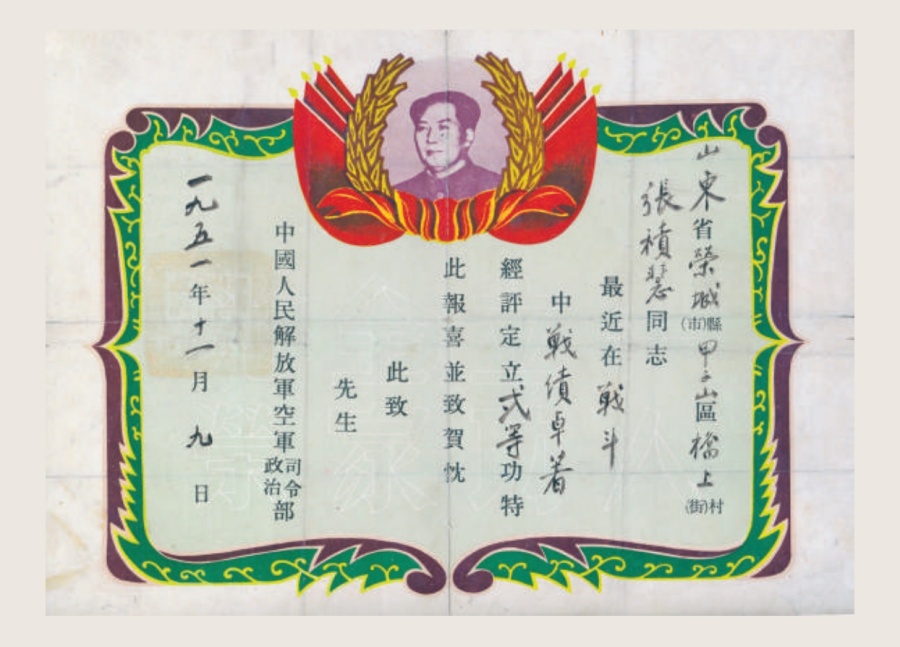 山東省榮城(市)縣甲子山區橋上(街)村
張積慧同志
最近在戦斗
中戦績卓著
經評定立弍等功特
此報喜並致賀忱
此致
先生
中國人民解放軍空軍司令政治部
一九五一年十一月九日